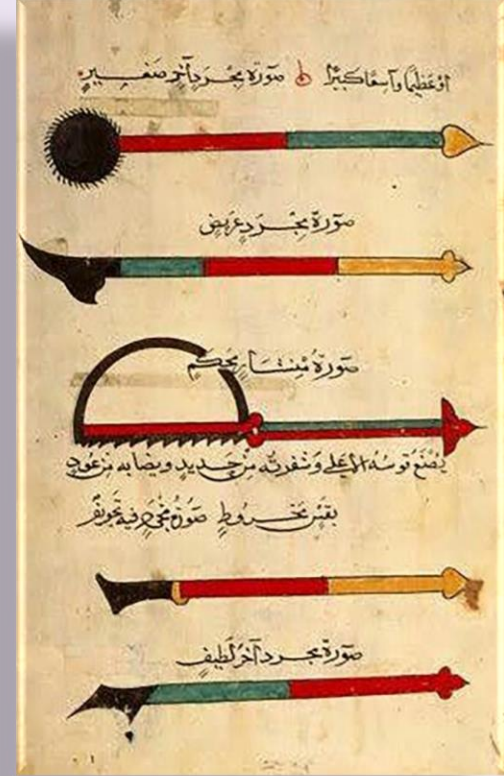 أو عظيمًا وآسعًا كبيرًا صورة مجرد آخر صغير
صورة مجرد عريض
صورة منشار محكم
يصنع قوسه الأعلى وشفرته من حديد ونصابه من عود
بقس مخروط صورة مجرد فيه تجويف
صورة مجرد آخر لطيف